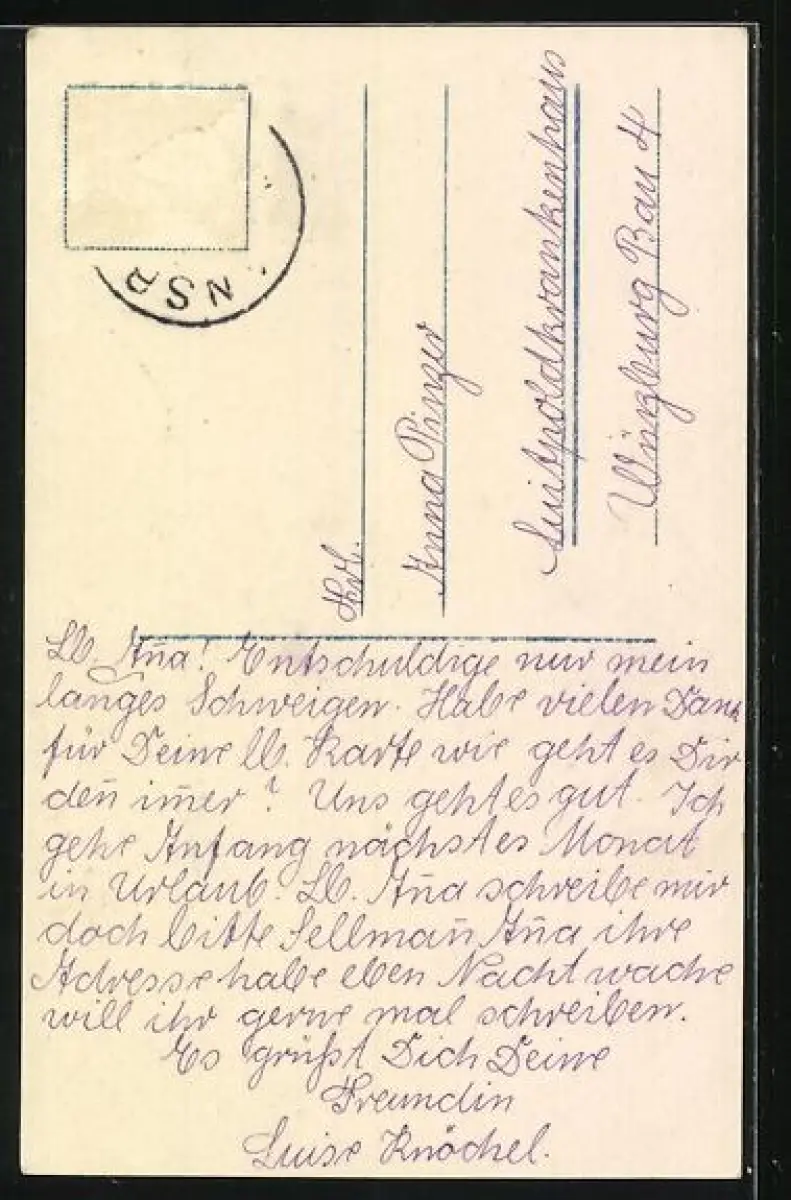 NSR
Frl.
Anna Pinzer
Luitpoldkrankenhaus
Würzburg Bau 4
Lb. Un̄a! Entschuldige nur mein
langes Schweigen. Habe vielen Dank
für Deine lb. Karte wie geht es Dir
den̄ im̄er? Uns geht es gut. Ich
gehe Anfang nächstes Monat
in Urlaub. Lb. An̄a schreibe mir
doch bitte Sellman̄ An̄a ihre
Adresse habe eben Nachtwache
will ihr gerne mal schreiben.
Es grüßt Dich Deine
Freundin
Luise Knöchel.